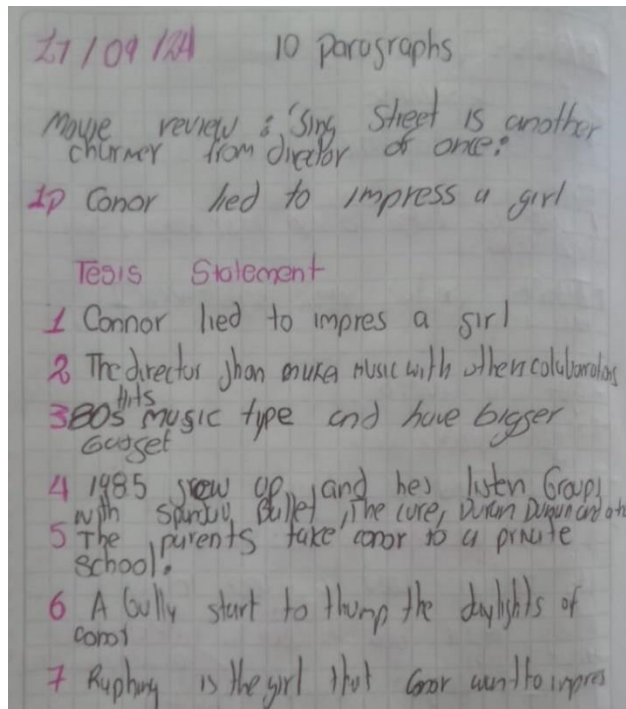 27/09/24 10 paragraphs
Movie review: 'Sing Street is another
churmer from director of once:
1p Conor lied to impress a girl
Tesis Statement
1 Connor lied to impres a girl
2 The director jhon muker music with others colaborators
Hits
3 80s music type and have bigger
Gudget
4 1985 grow up, and hes listen Groups
with Spandu Ballet, The cure, Duran Duran and oth
5 The parents take conor to a private
school.
6 A Bully start to thump the daylights of
conor
7 Raphiny is the girl that Conor want to impres